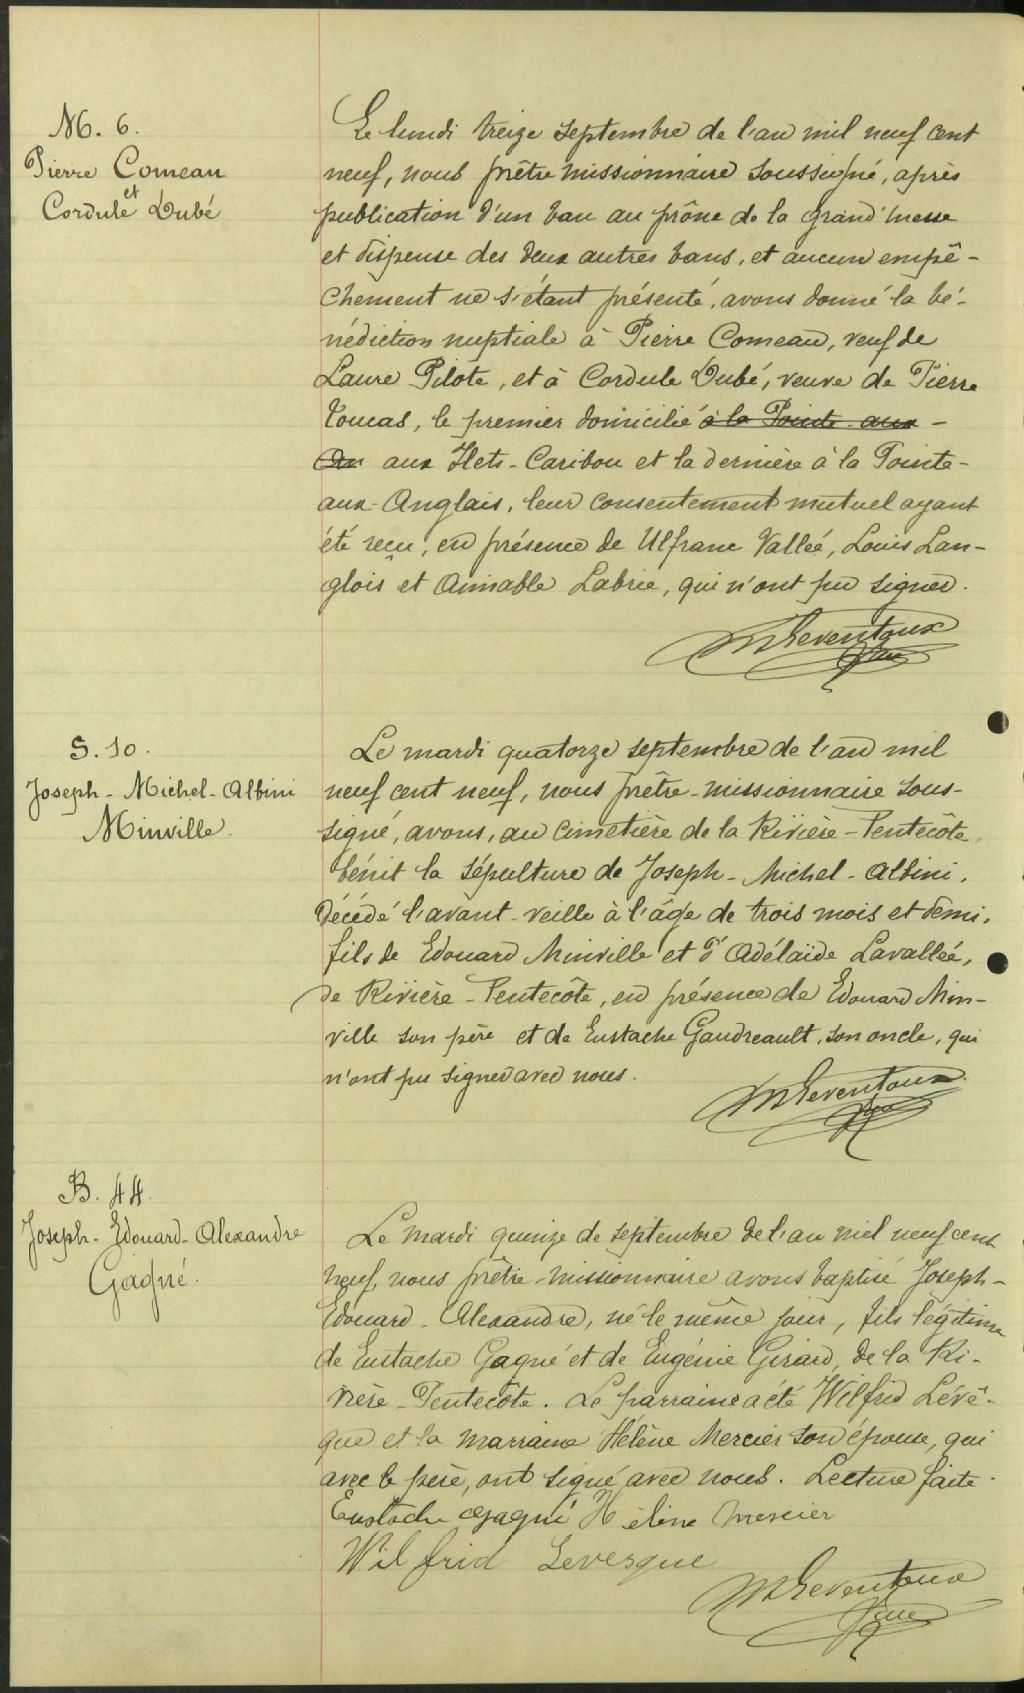 M. 6.
Pierre Comeau
et
Cordule Dubé
Le lundi treize septembre de l'an mil neuf cent
neuf, nous prêtre missionnaire soussigné, après
publication d'un ban au prône de la grand'messe
et dispense des deux autres bans, et aucun empê-
chement ne s'étant présenté, avons donné la bé-
nédiction nuptiale à Pierre Comeau, veuf de
Laure Pilote, et à Cordule Dubé, veuve de Pierre
Toucas, le premier domicilié à la Pointe aux -
An aux Ilets-Caribou et la dernière à la Pointe-
aux-Anglais, leur consentement mutuel ayant
été reçu, en présence de Ulfranc Vallée, Louis Lan-
glois et Aimable Labrie, qui n'ont pu signer.
S. 10.
Joseph-Michel-Albini
Minville.
Le mardi quatorze septembre de l'an mil
neuf cent neuf, nous prêtre-missionnaire sous-
signé, avons, au cimetière de la Rivière-Pentecôte,
bénit la sépulture de Joseph-Michel-Albini,
décédé l'avant-veille à l'âge de trois mois et demi,
fils de Edouard Minville et d'Adélaïde Lavallée,
de Rivière-Pentecôte, en présence de Edouard Min-
ville son père et de Eustache Gaudreault, son oncle, qui
n'ont pu signer avec nous.
B. 44.
Joseph-Edouard-Alexandre
Gagné.
Le mardi quinze de septembre de l'an mil neuf cent
neuf, nous prêtre-missionnaire avons baptisé Joseph-
Edouard-Alexandre, né le même jour, fils légitime
de Eustache Gagné et de Eugénie Girard, de la Ri-
vière-Pentecôte. Le parrain a été Wilfrid Lévê-
que et la marraine Hélène Mercier son épouse, qui
avec le père, ont signé avec nous. Lecture faite.
Eustache Gagné Hélène Mercier
Wilfrid Levesque